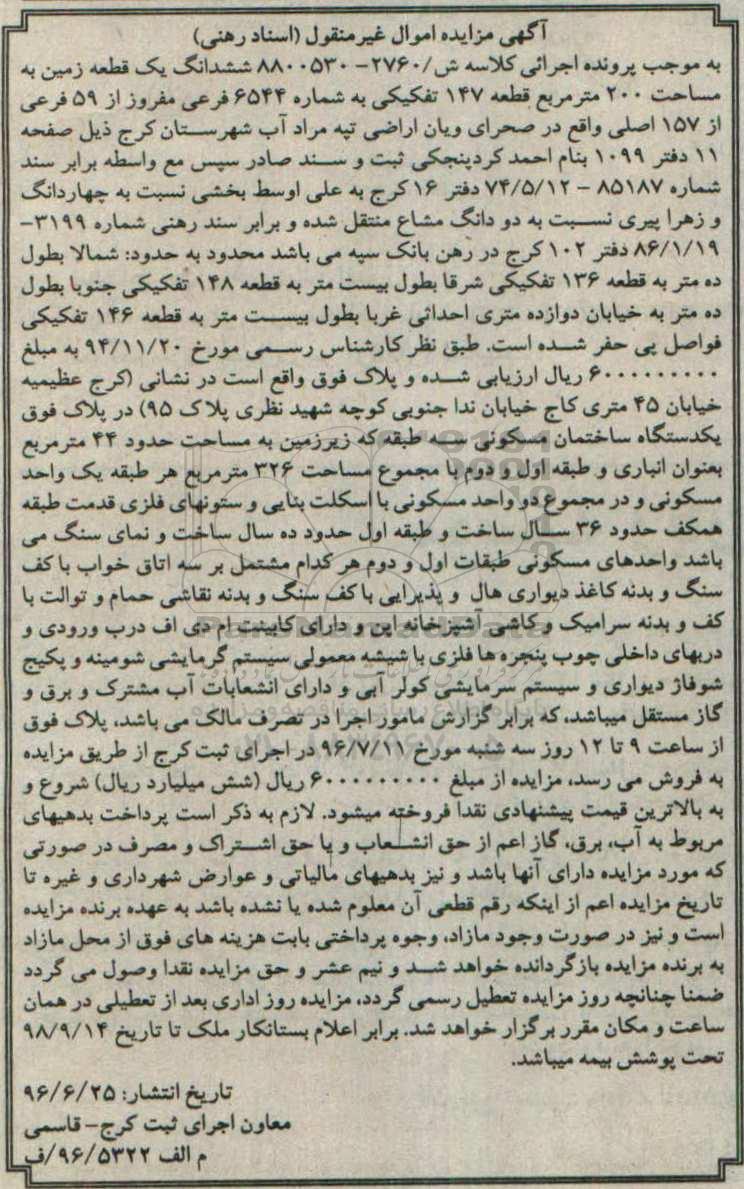 آگهی مزایده اموال غیرمنقول (اسناد رهنی)
به موجب پرونده اجرائی کلاسه ش/۲۷۶۰- ۸۸۰۰۵۳۰ ششدانگ یک قطعه زمین به
مساحت ۲۰۰ مترمربع قطعه ۱۴۷ تفکیکی به شماره ۶۵۴۴ فرعی مفروز از ۵۹ فرعی
از ۱۵۷ اصلی واقع در صحرای ویان اراضی تپه مراد آب شهرستان کرج ذیل صفحه
۱۱ دفتر ۱۰۹۹ بنام احمد کردپنجکی ثبت و سند صادر سپس مع واسطه برابر سند
شماره ۸۵۱۸۷ - ۷۴/۵/۱۲ دفتر ۱۶ کرج به علی اوسط بخشی نسبت به چهاردانگ
و زهرا پیری نسبت به دو دانگ مشاع منتقل شده و برابر سند رهنی شماره ۳۱۹۹-
۸۶/۱/۱۹ دفتر ۱۰۲ کرج در رهن بانک سپه می باشد محدود به حدود: شمالا بطول
ده متر به قطعه ۱۳۶ تفکیکی شرقا بطول بیست متر به قطعه ۱۴۸ تفکیکی جنوبا بطول
ده متر به خیابان دوازده متری احداثی غربا بطول بیست متر به قطعه ۱۴۶ تفکیکی
فواصل پی حفر شده است. طبق نظر کارشناس رسمی مورخ ۹۴/۱۱/۲۰ به مبلغ
۶۰۰۰۰۰۰۰۰۰ ریال ارزیابی شده و پلاک فوق واقع است در نشانی (کرج عظیمیه
خیابان ۴۵ متری کاج خیابان ندا جنوبی کوچه شهید نظری پلاک ۹۵) در پلاک فوق
یکدستگاه ساختمان مسکونی سه طبقه که زیرزمین به مساحت حدود ۴۴ مترمربع
بعنوان انباری و طبقه اول و دوم با مجموع مساحت ۳۲۶ مترمربع هر طبقه یک واحد
مسکونی و در مجموع دو واحد مسکونی با اسکلت بنایی و ستونهای فلزی قدمت طبقه
همکف حدود ۳۶ سال ساخت و طبقه اول حدود ده سال ساخت و نمای سنگ می
باشد واحدهای مسکونی طبقات اول و دوم هر کدام مشتمل بر سه اتاق خواب با کف
سنگ و بدنه کاغذ دیواری هال و پذیرایی با کف سنگ و بدنه نقاشی حمام و توالت با
کف و بدنه سرامیک و کاشی آشپزخانه اپن و دارای کابینت ام دی اف درب ورودی و
دربهای داخلی چوب پنجره ها فلزی با شیشه معمولی سیستم گرمایشی شومینه و پکیج
شوفاژ دیواری و سیستم سرمایشی کولر آبی و دارای انشعابات آب مشترک و برق و
گاز مستقل میباشد، که برابر گزارش مامور اجرا در تصرف مالک می باشد، پلاک فوق
از ساعت ۹ تا ۱۲ روز سه شنبه مورخ ۹۶/۷/۱۱ در اجرای ثبت کرج از طریق مزایده
به فروش می رسد، مزایده از مبلغ ۶۰۰۰۰۰۰۰۰۰ ریال (شش میلیارد ریال) شروع و
به بالاترین قیمت پیشنهادی نقدا فروخته میشود. لازم به ذکر است پرداخت بدهیهای
مربوط به آب، برق، گاز اعم از حق انشعاب و یا حق اشتراک و مصرف در صورتی
که مورد مزایده دارای آنها باشد و نیز بدهیهای مالیاتی و عوارض شهرداری و غیره تا
تاریخ مزایده اعم از اینکه رقم قطعی آن معلوم شده یا نشده باشد به عهده برنده مزایده
است و نیز در صورت وجود مازاد، وجوه پرداختی بابت هزینه های فوق از محل مازاد
به برنده مزایده بازگردانده خواهد شد و نیم عشر و حق مزایده نقدا وصول می گردد
ضمنا چنانچه روز مزایده تعطیل رسمی گردد، مزایده روز اداری بعد از تعطیلی در همان
ساعت و مکان مقرر برگزار خواهد شد. برابر اعلام بستانکار ملک تا تاریخ ۹۸/۹/۱۴
تحت پوشش بیمه میباشد.
تاریخ انتشار: ۹۶/۶/۲۵
معاون اجرای ثبت کرج- قاسمی
م الف ۹۶/۵۳۲۲/ف